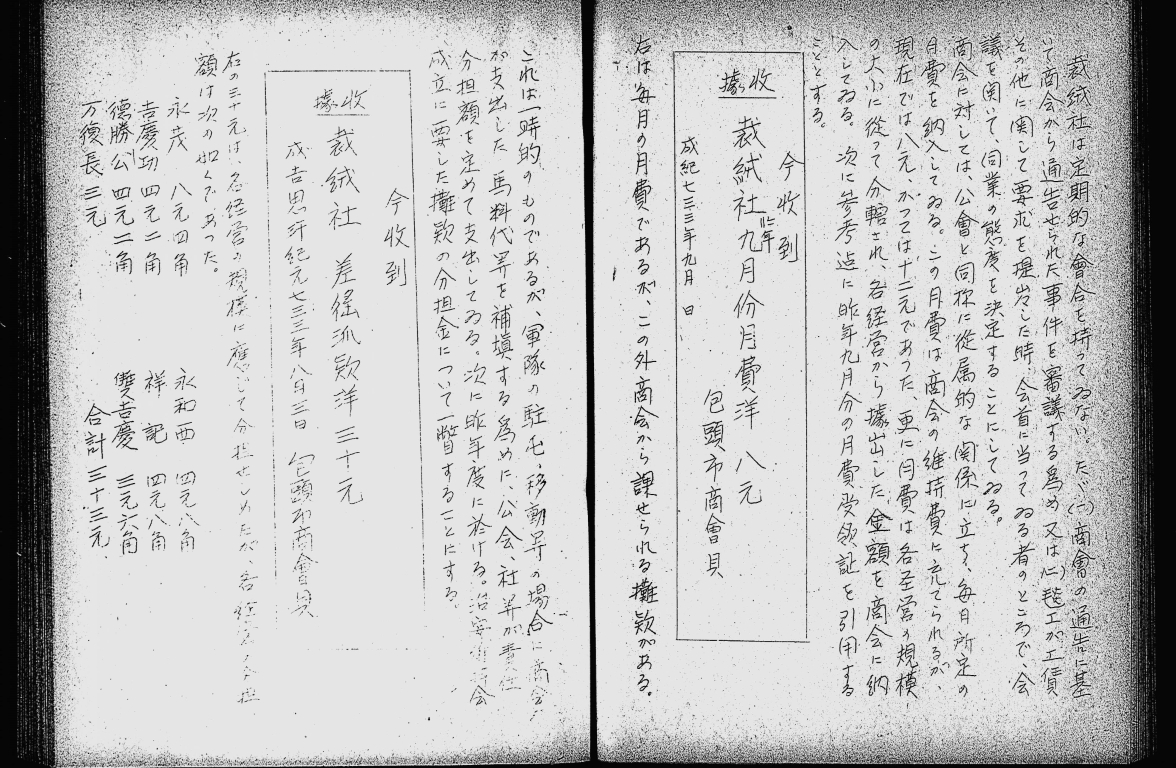 裁絨社は定期的な會合を持ってゐない。たゞ(一)商會の通告に基
いて商会から通告せられた事件を審議する爲め又は(二)毯工が工賃
その他に関して要求を提出した時、会首に当ってゐる者のところで、会
議を開いて、同業の態度を決定することにしてゐる。
商会に対しては、公會と同様に從属的な関係に立ち、毎月所定の
月費を納入してゐる。この月費は商会の維持費に充てられるが、
現在では八元、かつては十二元であった、更に月費は各経営の規模
の大小に從って分轄され、各経営から據出した金額を商会に納
入してゐる。次に参考迠に昨年九月分の月費受領証を引用する
こととする。
收據
今收到
裁絨社 昨年九月份月費洋 八元
包頭市商會具
成紀七三三年九月 日
右は毎月の月費であるが、この外商会から課せられる攤欵がある。
これは一時的のものであるが、軍隊の駐屯、移動等の場合に商会
が支出した馬料代等を補填する為めに、公会、社等が責任
分担額を定めて支出してゐる。次に昨年度に於ける。治安 会
成立に要した攤欵の分担金について一瞥することにする。
收據
今收到
裁絨社 差徭派欵洋 三十元
成吉思汗紀元七三三年八月三日 包頭市商會具
右の三十元は、各経営の規模に應じて分担せしめたが、各経営の分担
額は次の如くであった。
永茂 八元四角 永和西 四元八角
吉慶功 四元二角 祥記 四元八角
德勝公 四元二角 雙吉慶 三元六角
万復長 三元 合計 三十三元、